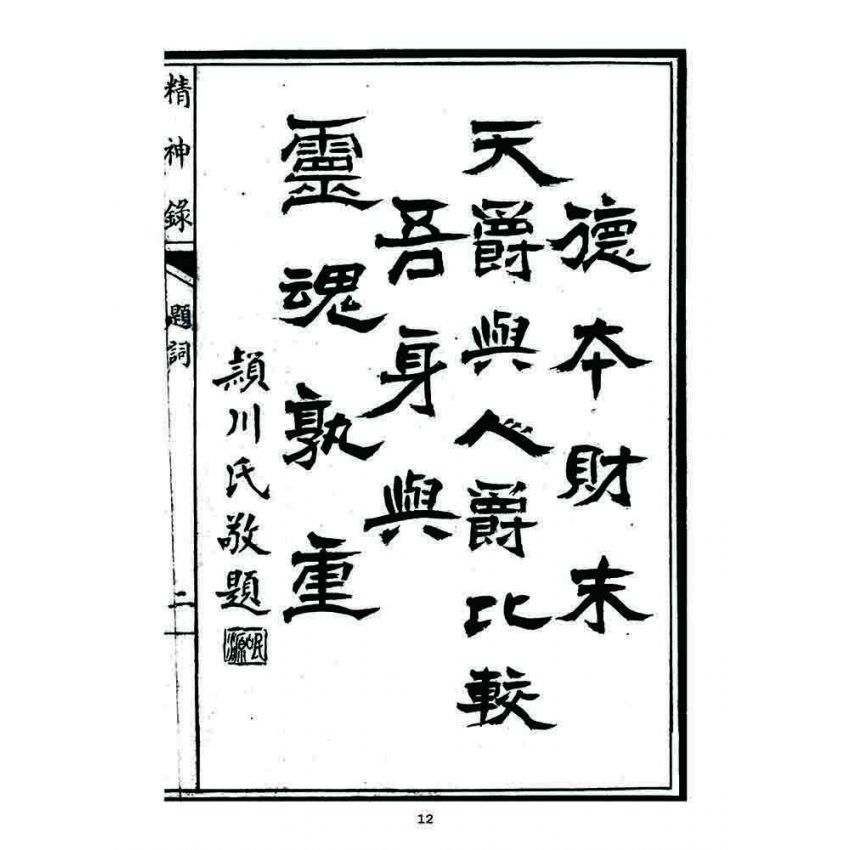 德本財末
天爵與人爵比較
吾身與
靈魂孰重
頴川氏敬題
精神錄
題詞
二
12